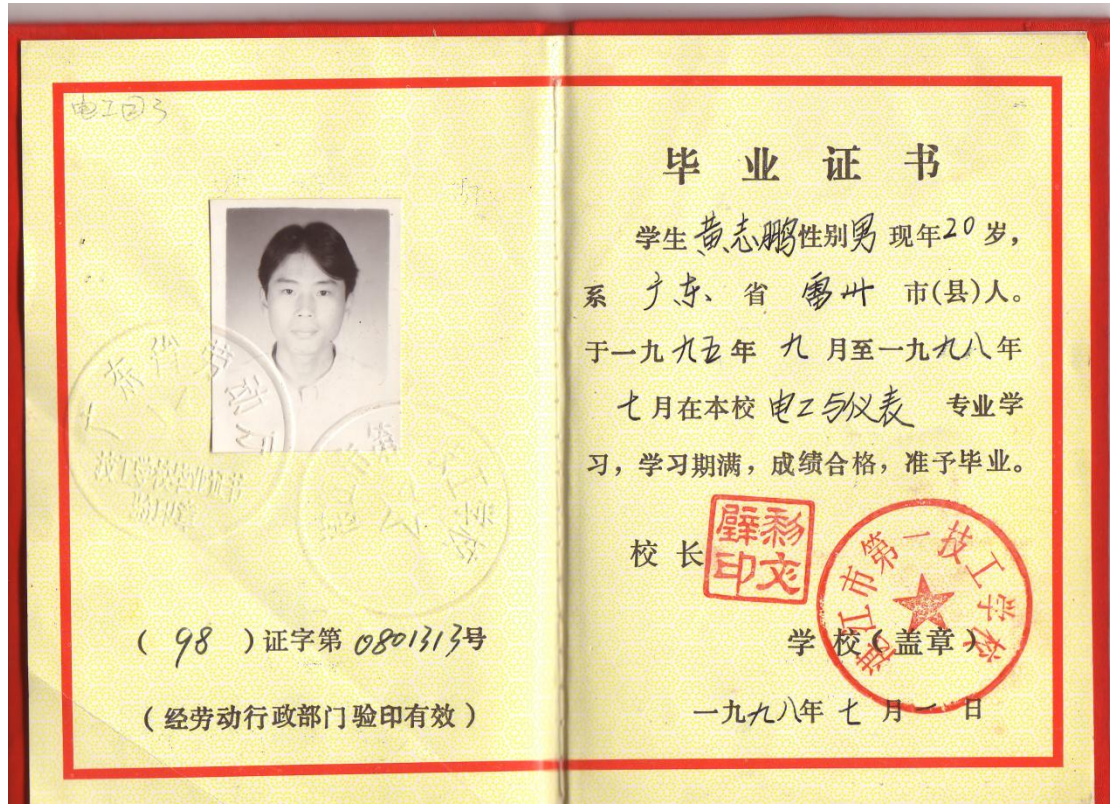 电工回3
广东省劳动厅
技工学校毕业证书
验印章
湛江市第一技工学校
(98)证字第0801313号
(经劳动行政部门验印有效)
毕业证书
学生黄志鹏性别男现年20岁,
系广东省雷州市(县)人。
于一九九五年九月至一九九八年
七月在本校电工与仪表专业学
习,学习期满,成绩合格,准予毕业。
校长
学校(盖章)
湛江市第一技工学校
一九九八年七月一日